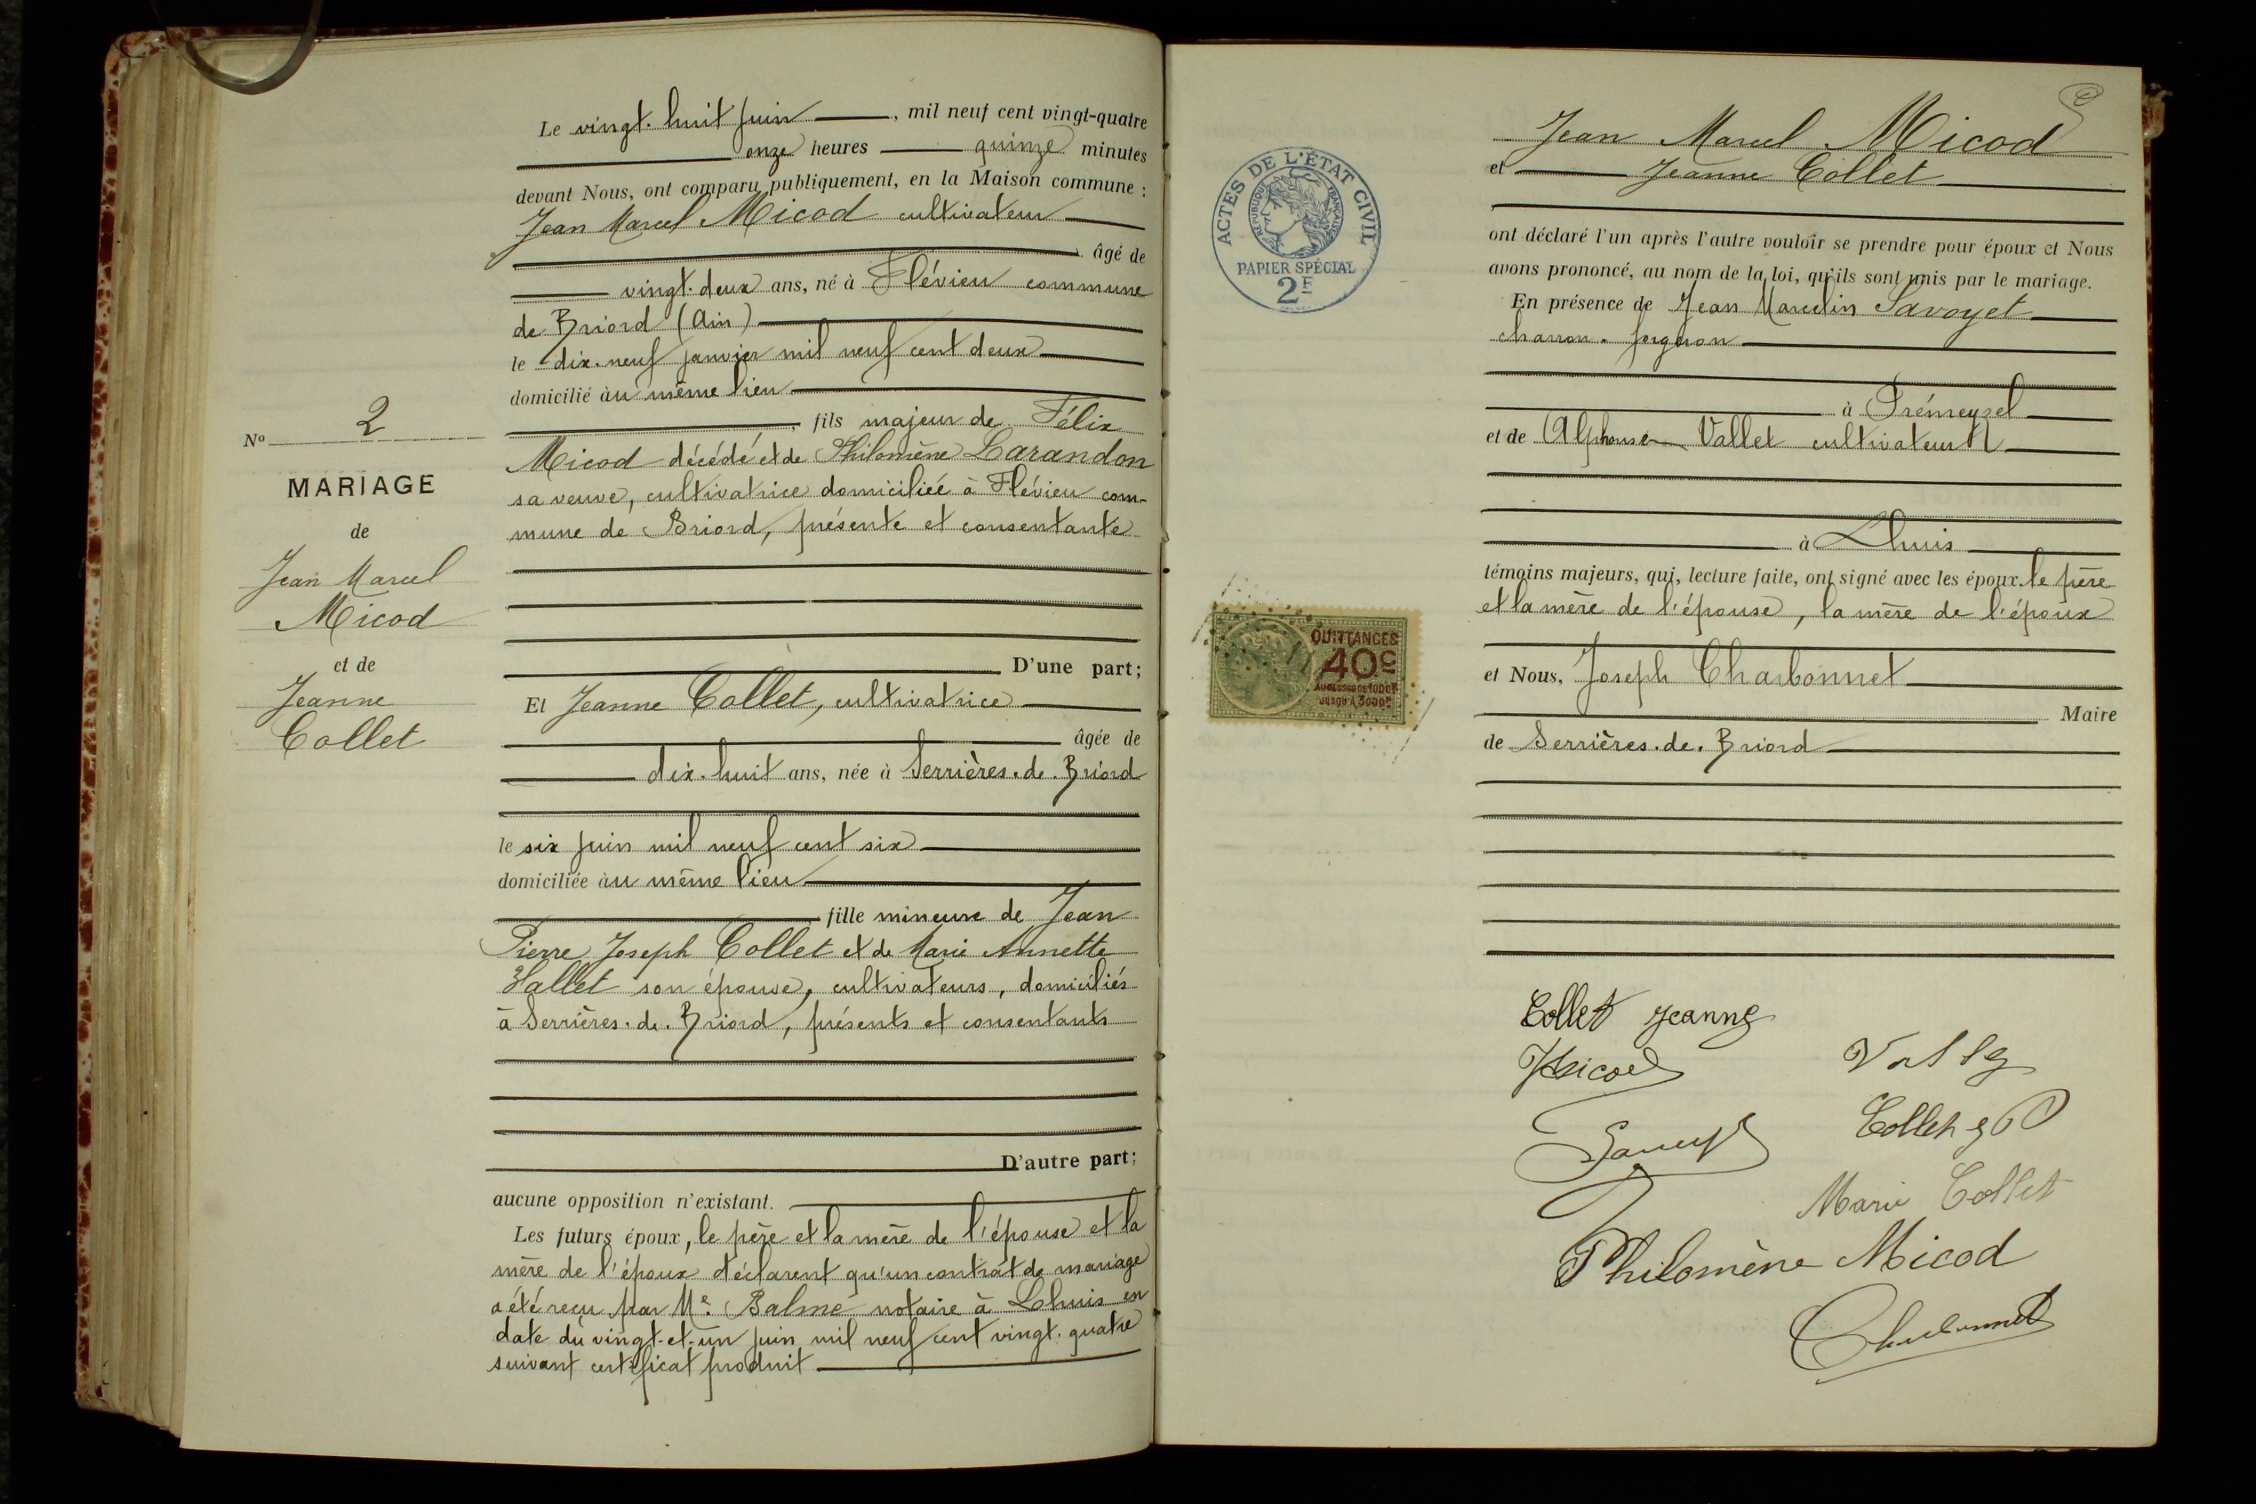 Le vingt-huit juin, mil neuf cent vingt-quatre
onze heures quinze minutes
devant Nous, ont comparu publiquement, en la Maison commune :
Jean Marcel Micod cultivateur
âgé de
vingt-deux ans, né à Flévieu commune
de Briord (Ain)
le dix-neuf janvier mil neuf cent deux
domicilié au même lieu
, fils majeur de Félix
Micod décédé et de Philomène Larandon
sa veuve, cultivatrice domiciliée à Flévieu com-
mune de Briord, présente et consentante
D'une part;
Et Jeanne Collet, cultivatrice
âgée de
dix-huit ans, née à Serrières-de-Briord
le six juin mil neuf cent six
domiciliée au même lieu
fille mineure de Jean
Pierre Joseph Collet et de Marie Annette
Vallet son épouse, cultivateurs, domiciliés
à Serrières-de-Briord, présents et consentants
D'autre part;
aucune opposition n'existant.
Les futurs époux, le père et la mère de l'épouse et la
mère de l'époux déclarent qu'un contrat de mariage
a été reçu par Me Balme notaire à Lhuis en
date du vingt-et-un juin mil neuf cent vingt-quatre
suivant certificat produit
No 2
MARIAGE
de
Jean Marcel
Micod
et de
Jeanne
Collet
Jean Marcel Micod
et Jeanne Collet
ont déclaré l'un après l'autre vouloir se prendre pour époux et Nous
avons prononcé, au nom de la loi, qu'ils sont unis par le mariage.
En présence de Jean Marcelin Savoyet
charron-forgeron
à Crémeyzel
et de Alphonse Vallet cultivateur
à Lhuis
témoins majeurs, qui, lecture faite, ont signé avec les époux, le père
et la mère de l'épouse, la mère de l'époux
et Nous, Joseph Charbonnet
Maire
de Serrières-de-Briord
ACTES DE L'ÉTAT CIVIL
RÉPUBLIQUE FRANÇAISE
PAPIER SPÉCIAL
2F
QUITTANCES
40c
Collet Jeanne
Micod
Collet
Marie Collet
Philomène Micod
Charbonnet